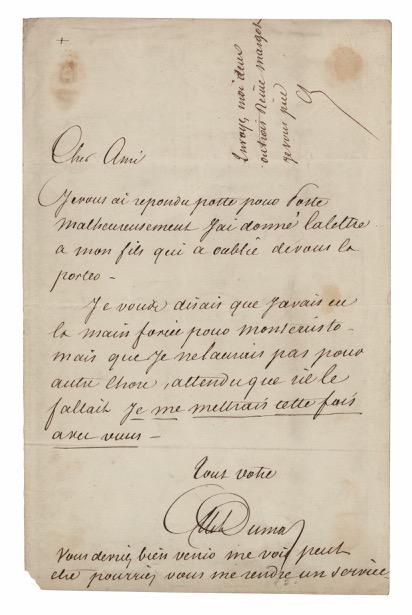 Envoyez moi deux
ou trois Reine Margot
je vous prie
Cher Ami
Je vous ai repondu poste pour Poste
Malheureusement J'ai donné la lettre
a mon fils qui a oublié de vous la
porter –
Je vous disais que J'avais eu
la main forcée pour Montecristo –
mais que Je ne l'aurais pas pour
autre chose, attendu que s'il le
fallait Je me mettrais cette fois
avec vous –
Tout votre
Alex Dumas
Vous devriez bien venir me voir peut
etre pourriez vous me rendre un service